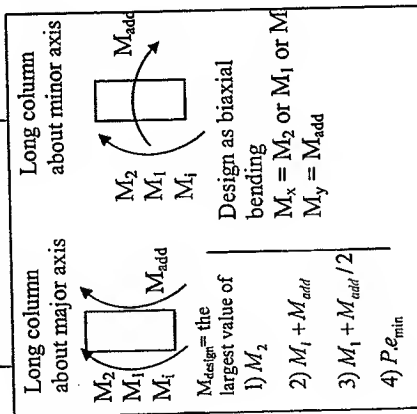 Long column
about major axis
M₂
M₁
Mᵢ
M_add
M_design= the
largest value of
1) M₂
2) Mᵢ + M_add
3) M₁ + M_add/2
4) P.e_min
Long column
about minor axis
M_add
M₂
M₁
Mᵢ
Design as biaxial
bending
Mₓ = M₂ or M₁ or M
M_y = M_add